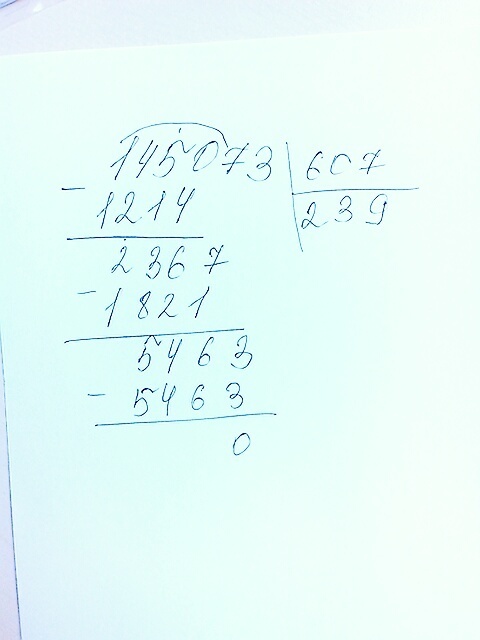 145073 607
- 1214 239
2367
- 1821
5463
- 5463
0